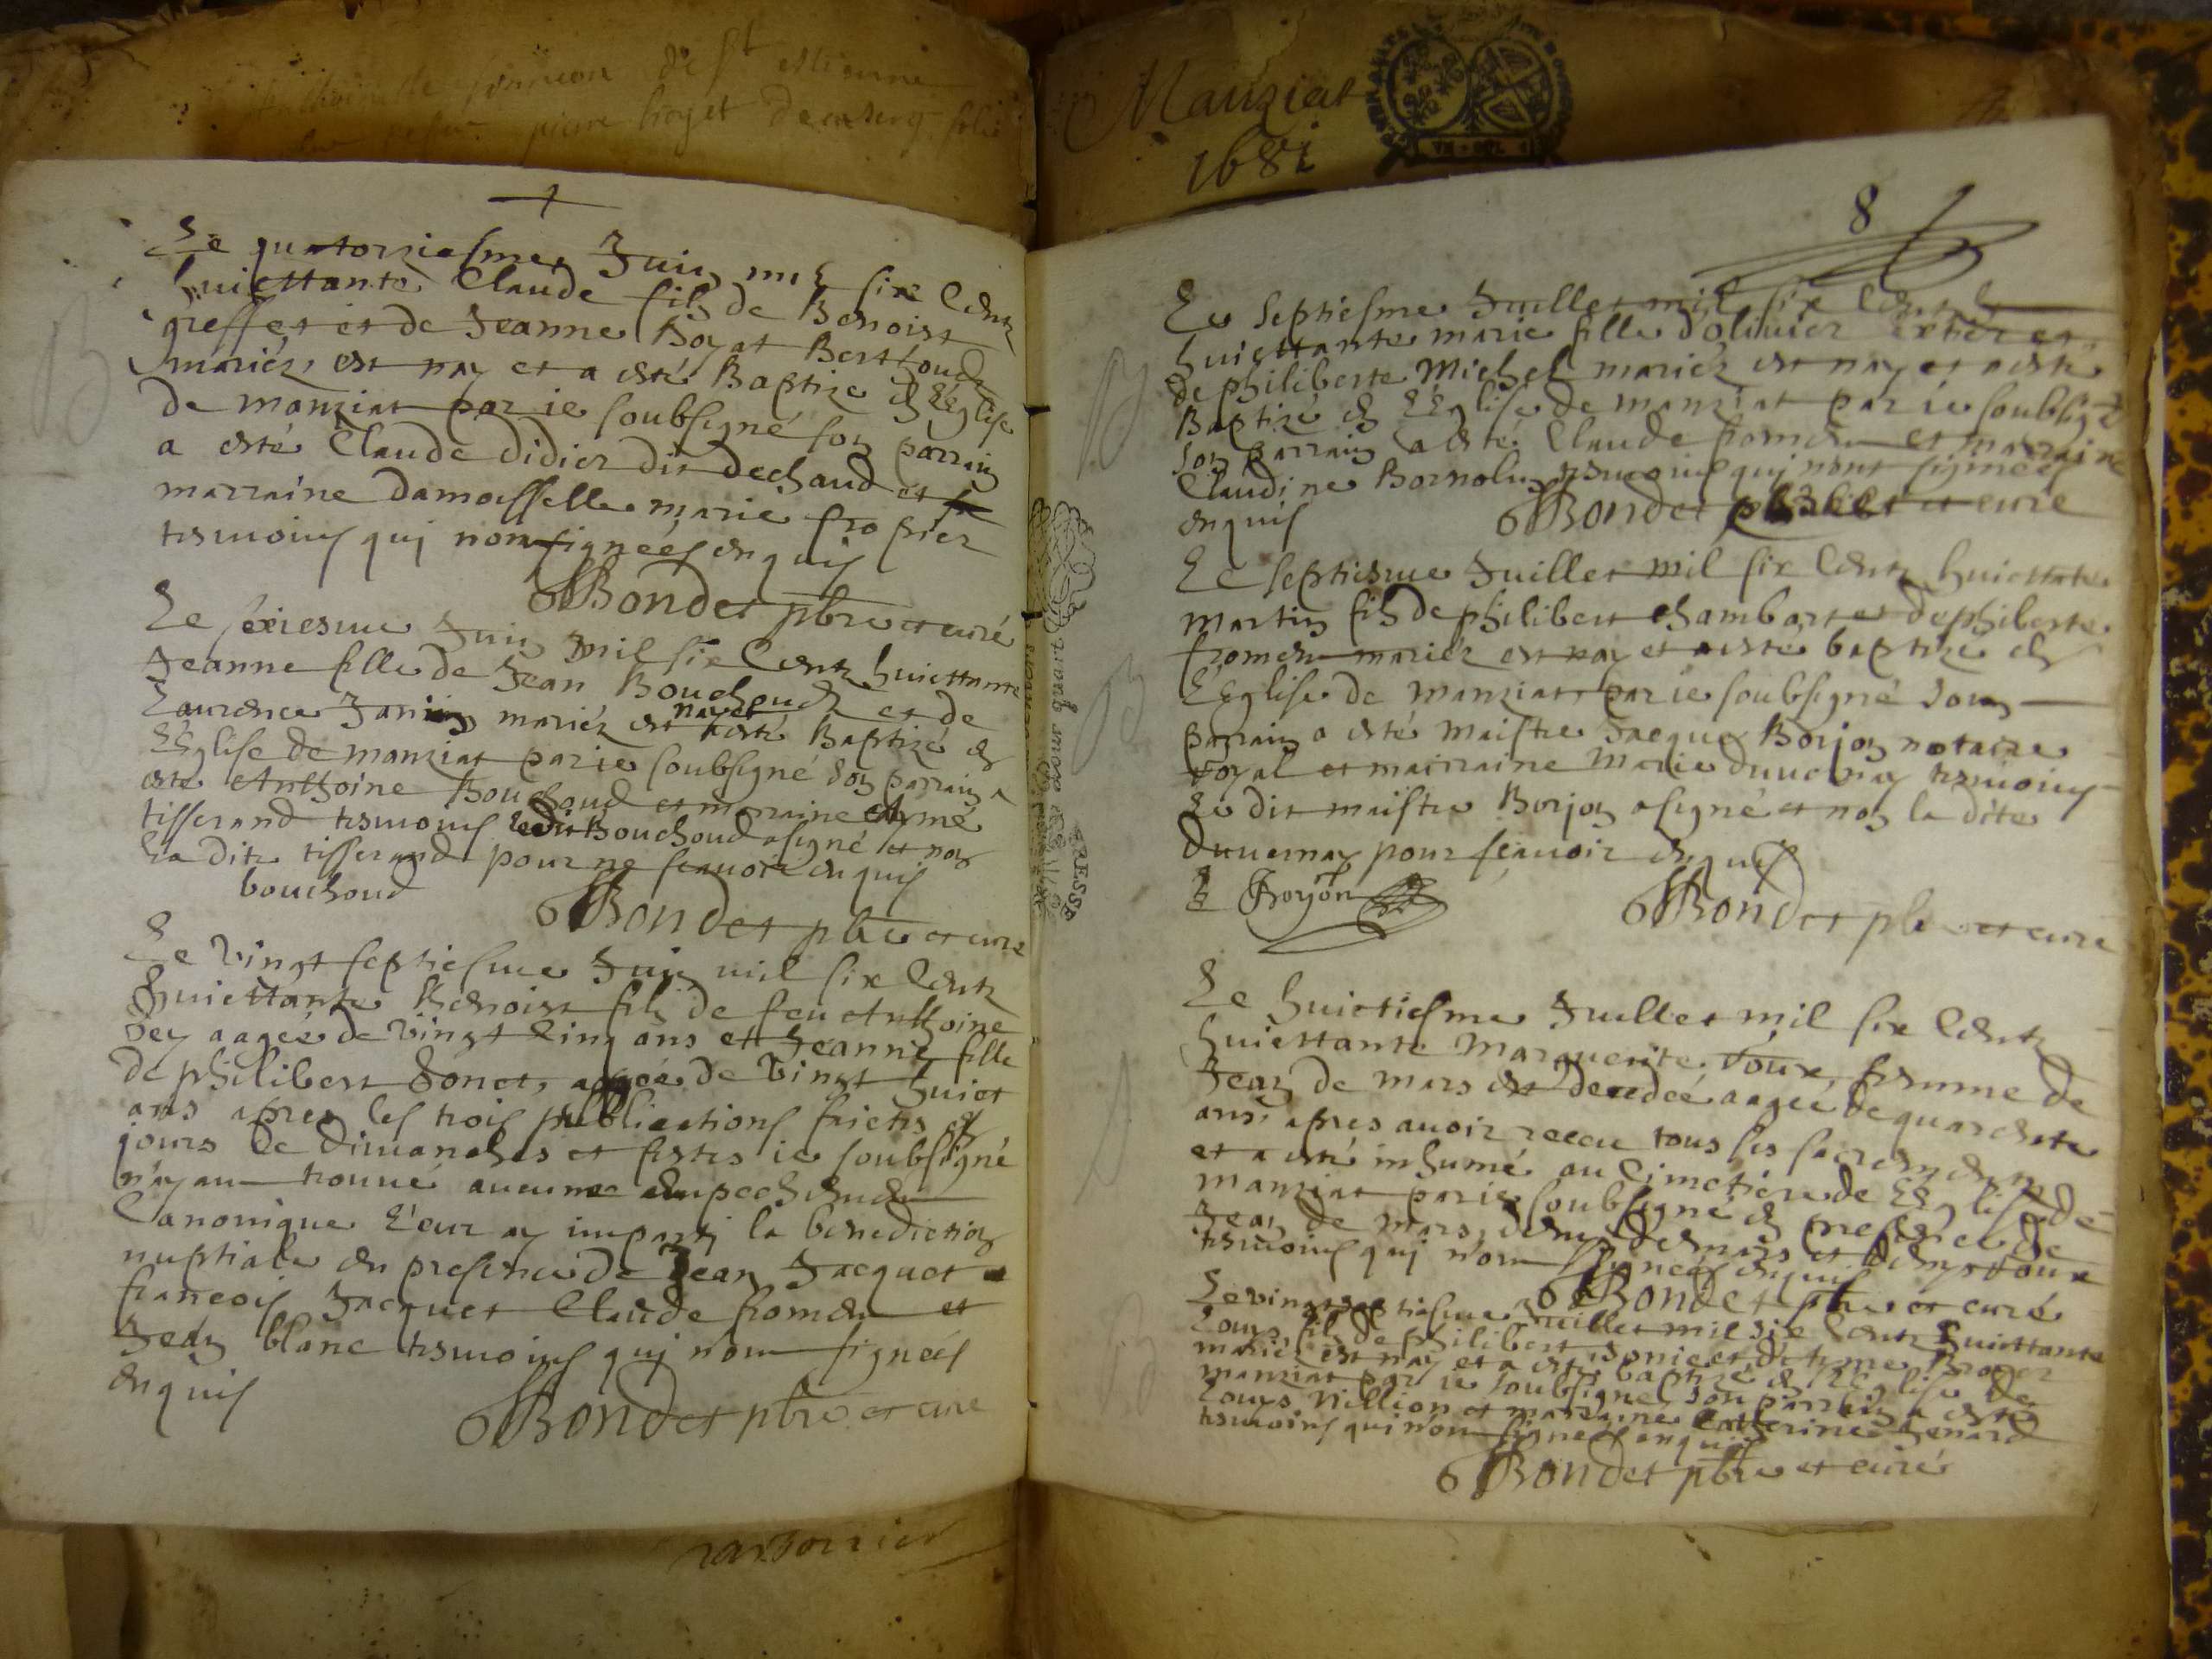 de st estienne
pierre boyet
Le quatorziesme Juin mil six centz
huicttante Claude filz de Benoist
greffet et de Jeanne Boyat Berthoud
mariéz, est nay et a esté Baptize en L'Eglise
de manziat par ie soubsigné son parrain
a esté Claude didier dit dechaud et sa
marraine damoisselle marie fropier
tesmoins qui nont signeés enquis
Bondet pbre et curé
Le séxiesme Juin mil six centz huicttante
Jeanne fille de Jean Bouchoud et de
Laurence Janin mariéz est nay et a esté Baptizé en
L'Eglise de manziat par ie soubsigné son parrain a
esté Anthoine Bouchoud et marraine Aymé
tisserand tesmoins ledit Bouchoud a signé et non
La dite tisserand pour ne scavoir enquis
bouchoud
Bondet pbre et curé
Le vingt septiesme Juin mil six centz
huicttante Benoist filz de feu Anthoine
Dey aageé de vingt cinq ans et Jeanne fille
de philibert Donet, aageé de vingt huict
ans apres les trois publications faictes es
jours de dimanches et festes ie soubsigné
n'ayant trouué aucune empechement
Canonique Leur ay imparty la benediction
nuptiale en presence de Jean Jacquet
francois Jacquet Claude froment et
Jean blanc tesmoins qui n'ont signeés
enquis
Bondet pbre et curé
Manziat
1681
8
Le septiesme Juillet mil six centz
huicttante marie fille d'oliuier extier et
de philiberte Michel mariéz est nay et a esté
Baptizé en L'Eglise de manziat par ie soubsigné
son parrain a esté Claude froment et marraine
Claudine Bornolin tesmoins qui n'ont signeés
enquis
Bondet pbre et curé
Le septiesme Juillet mil six centz huicttante
martin filz de philibert chambart et de philiberte
froment mariéz est nay et a esté baptizé en
L'Eglise de manziat par ie soubsigné son
parrain a esté maistre Jacque Borjon notaire
royal et marraine Marie duuernay tesmoins
Le dit maistre Borjon a signé et non la dite
Duuernay pour scauoir enquis
Borjon
Bondet pbre et curé
Le huictiesme Juillet mil six centz
huicttante Marguerite roux, femme de
Jean de mars est decedeé aageé de quarente
ans apres auoir receu tous les sacrements
et a esté inhumé au cimetiere de L'Eglise de
manziat par ie soubsigné en presence de
Jean de mars, denys demars et denys roux
tesmoins qui n'ont signeés enquis
Bondet pbre et curé
Le vingt septiesme Juillet mil six centz huicttante
Louys, filz de philibert et d'etienne Broyer
mariéz est nay et a esté baptizé en L'Eglise de
manziat par ie soubsigné son parrain a esté
Louys Nillion et marraine Catherine Renard
tesmoins qui n'ont signeés enquis
Bondet pbre et curé